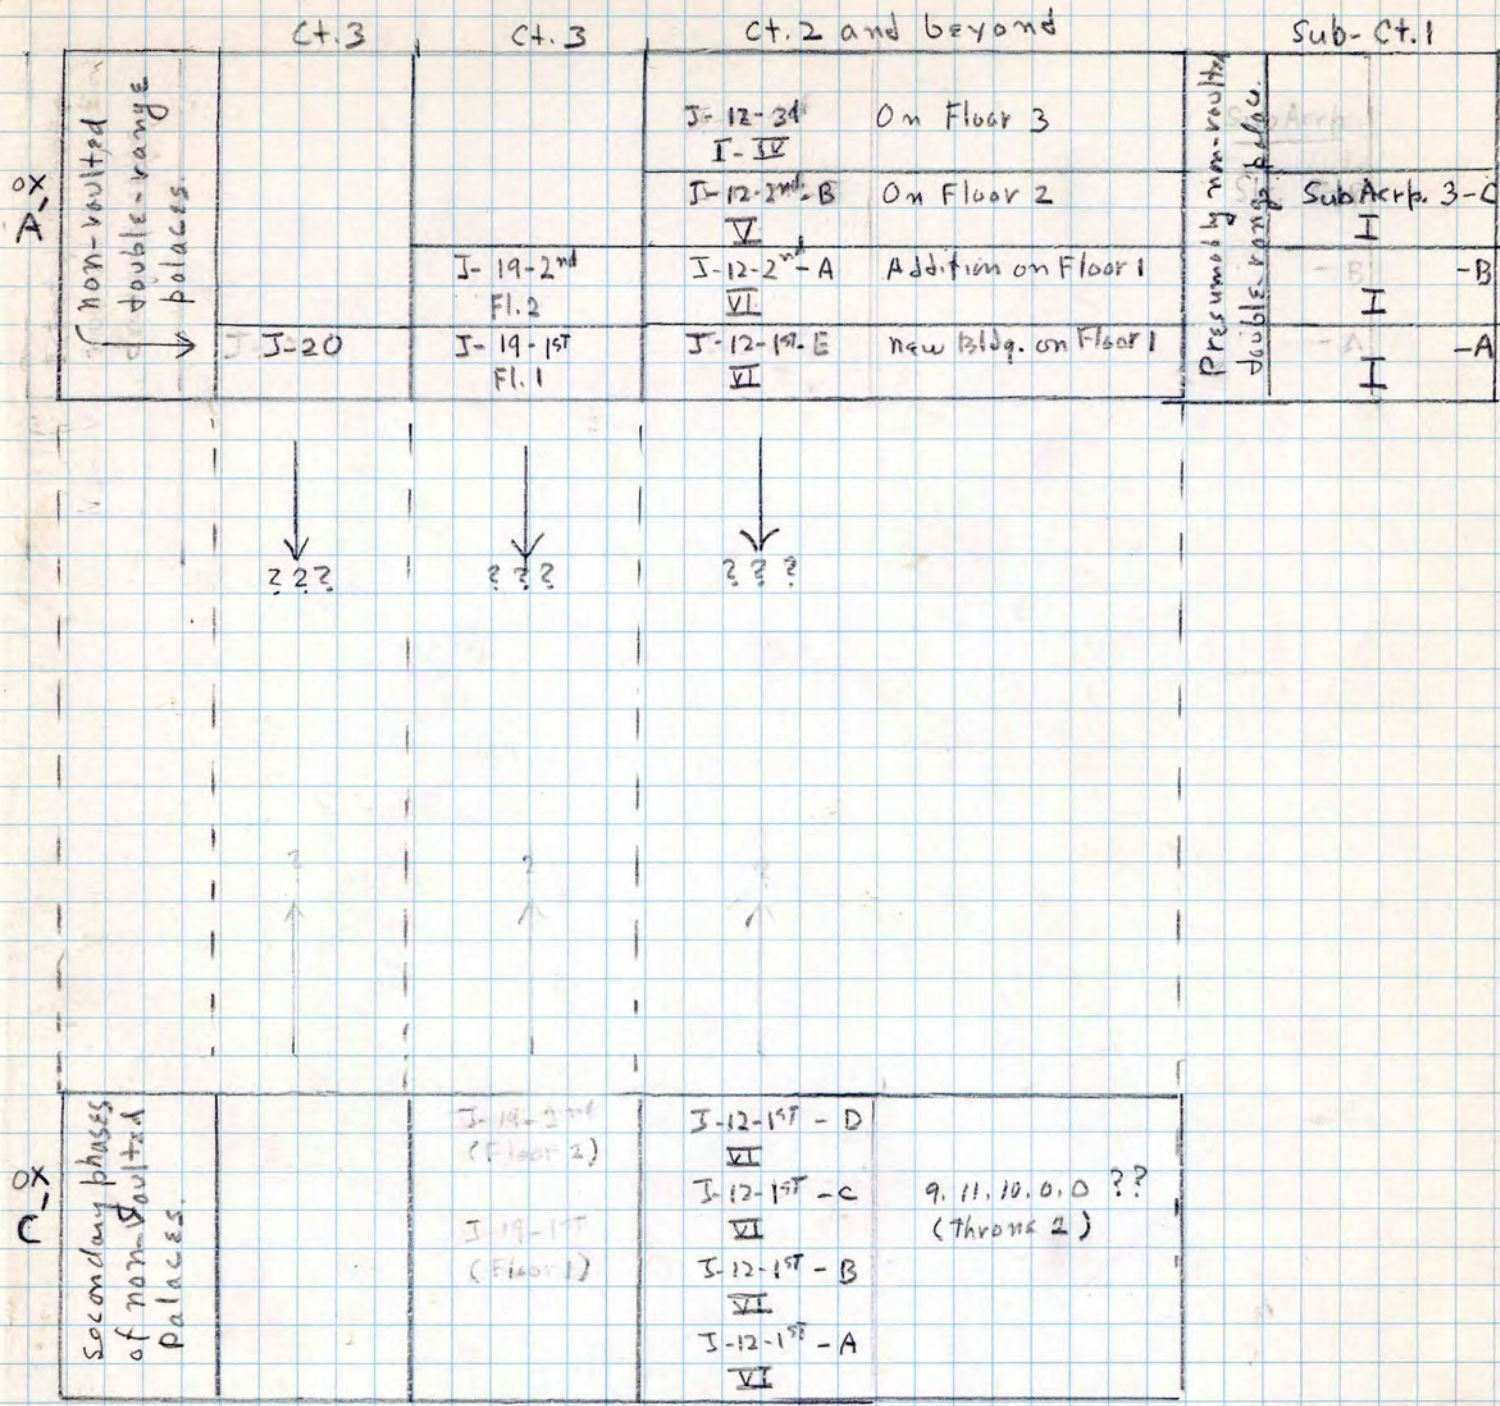 Ct.3
Ct.3
Ct.2 and beyond
Sub-Ct.1
OX
A'
non-vaulted
double-range
palaces.
J-12-3d
I-IV
On Floor 3
J-12-2nd-B
V
On Floor 2
J-19-2nd
Fl.2
J-12-2nd-A
VI
Addition on Floor 1
J-20
J-19-1ST
Fl.1
J-12-1ST-E
VI
new Bldg. on Floor 1
Presumably non-vaulted
double-range palace.
Sub Acrp. 3-C
I
-B
I
-A
I
???
???
???
?
?
?
OX
C'
Secondary phases
of non-vaulted
Palaces.
J-19-2nd
(Floor 2)
J-19-1ST
(Floor 1)
J-12-1ST-D
VI
J-12-1ST-C
VI
J-12-1ST-B
VI
J-12-1ST-A
VI
9.11.10.0.0 ??
(Throne 2)